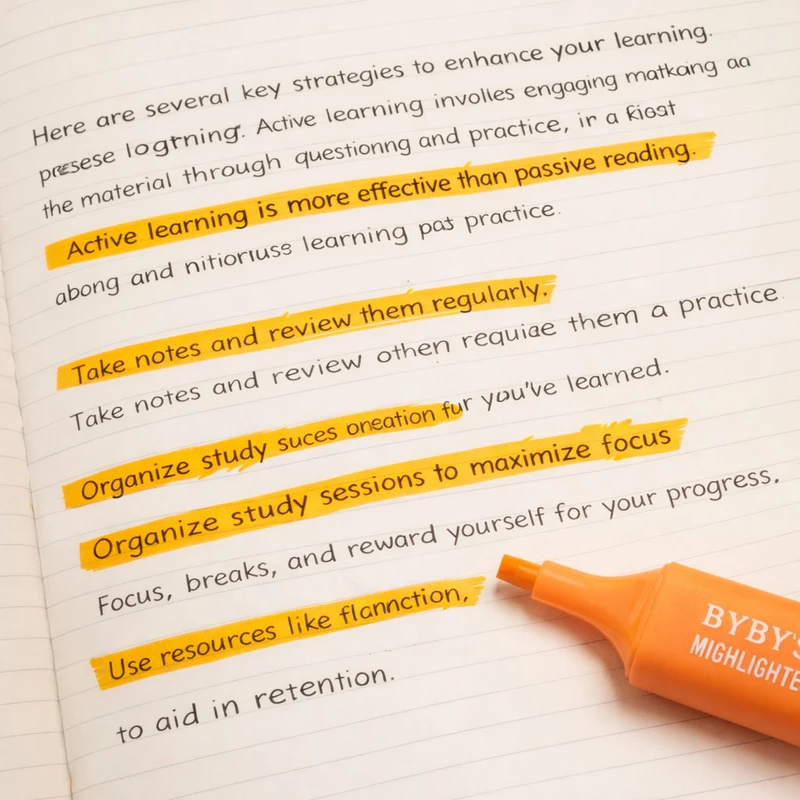 Here are several key strategies to enhance your learning.
presese logtrning. Active learning involles engaging matkaing aa
the material through questionng and practice, ir a fiost
Active learning is more effective than passive reading.
abong and nitioriuss learning pas practice.
Take notes and review them regularly.
Take notes and review othen requiae them a practice
Organize study suces oneation fur you've learned.
Organize study sessions to maximize focus
Focus, breaks, and reward yourself for your progress.
Use resources like flannction,
to aid in retention.
BYBY'S
MIGHLIGHTE